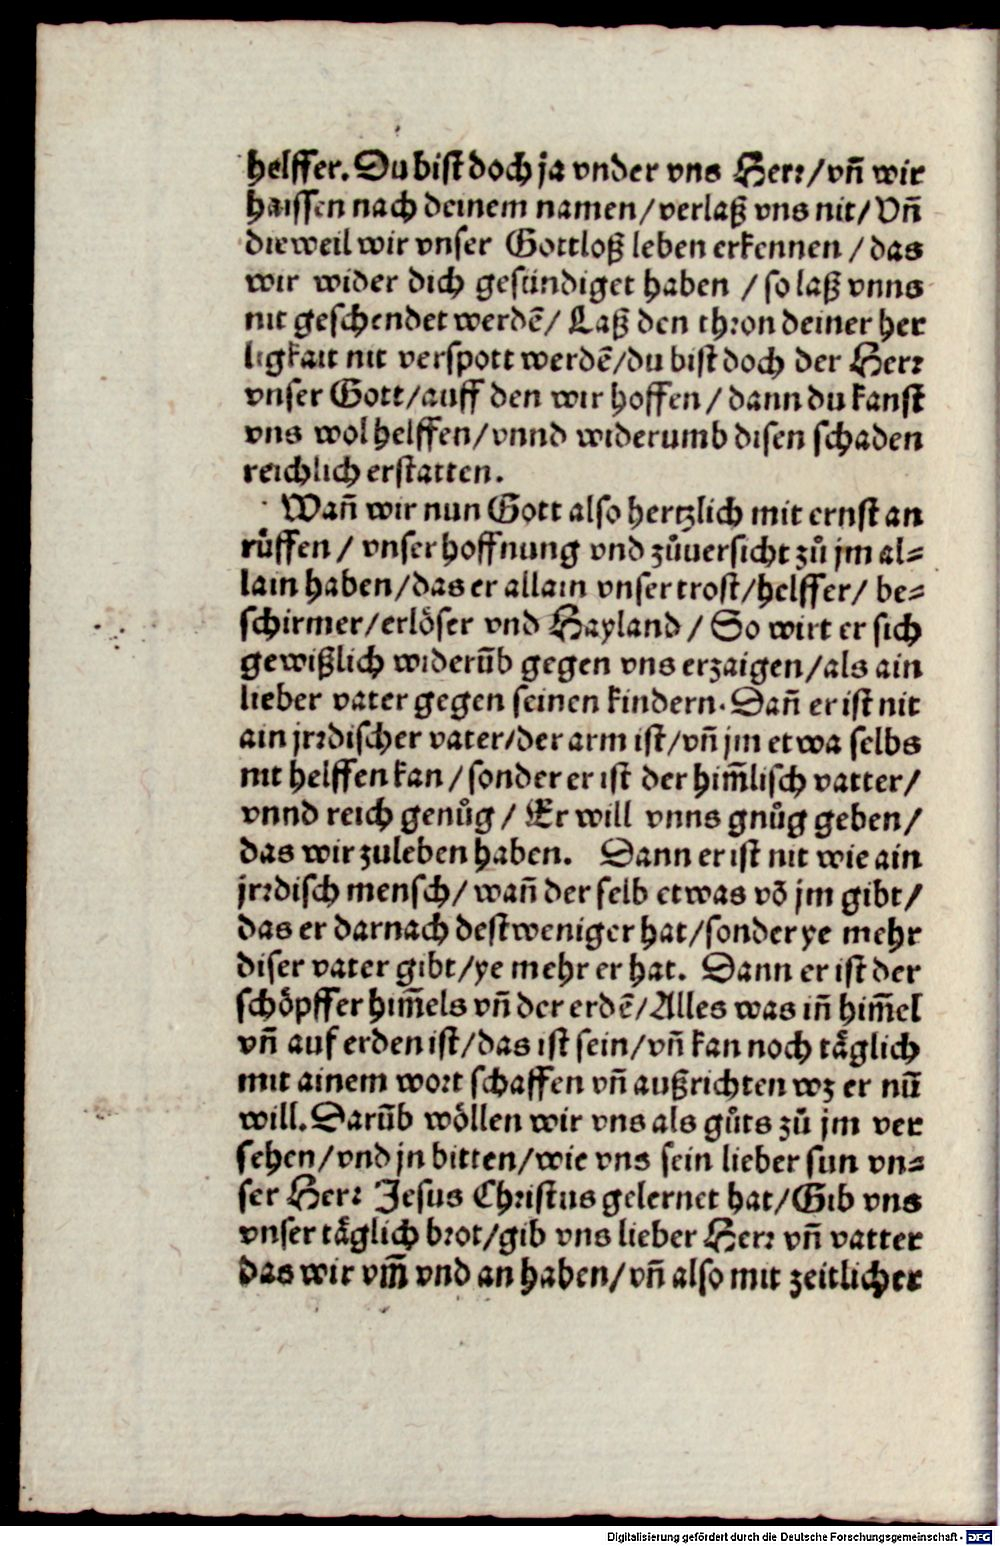 helffer. Du bist doch ja vnder vns Herr/vñ wir
haissen nach deinem namen/verlaß vns nit/Vñ
dieweil wir vnser Gottloß leben erkennen/das
wir wider dich gesündiget haben /so laß vnns
nit geschendet werdẽ/ Laß den thron deiner her
ligkait nit verspott werdẽ/du bist doch der Herr
vnser Gott/auff den wir hoffen/dann du kanst
vns wol helffen/vnnd widerumb disen schaden
reichlich erstatten.
Wañ wir nun Gott also hertzlich mit ernst an
růffen / vnser hoffnung vnd zůuersicht zů jm al⸗
lain haben/das er allain vnser trost/helffer/ be⸗
schirmer/erlöser vnd Hayland / So wirt er sich
gewißlich widerũb gegen vns erzaigen/als ain
lieber vater gegen seinen kindern. Dañ er ist nit
ain jrrdischer vater/der arm ist/vñ jm etwa selbs
nit helffen kan/sonder er ist der him̃lisch vatter/
vnnd reich genůg / Er will vnns gnůg geben/
das wir zuleben haben. Dann er ist nit wie ain
jrrdisch mensch/ wañ der selb etwas võ jm gibt/
das er darnach destweniger hat/sonder ye mehr
diser vater gibt/ye mehr er hat. Dann er ist der
schöpffer him̃els vñ der erdẽ/Alles was iñ him̃el
vñ auf erden ist/das ist sein/vñ kan noch täglich
mit ainem wort schaffen vñ außrichten wz er nũ
will. Darũb wöllen wir vns als gůts zů jm ver
sehen/vnd jn bitten/wie vns sein lieber sun vn⸗
ser Herr Jesus Christus gelernet hat/Gib vns
vnser täglich brot/gib vns lieber Herr vñ vatter
das wir vm̃ vnd an haben/vñ also mit zeitlicher
Digitalisierung gefördert durch die Deutsche Forschungsgemeinschaft - DFG